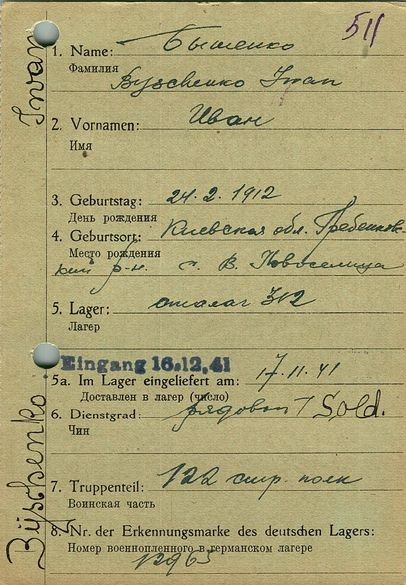 511
1. Name: Бышенко
Фамилия
Byschenko Iwan
2. Vornamen: Иван
Имя
3. Geburtstag: 24.2.1912
День рождения
4. Geburtsort: Киевская обл. Гребенков-
Место рождения
кий р-н. с. В. Новоселица
5. Lager: сталаг 312
Лагер
Eingang 16.12.41
5a. Im Lager eingeliefert am: 17.11.41
Доставлен в лагер (число)
6. Dienstgrad: рядовой / Sold.
Чин
7. Truppenteil: 122 стр. полк
Воинская часть
8. Nr. der Erkennungsmarke des deutschen Lagers:
Номер военнопленного в германском лагере
12965
Byschenko
Iwan